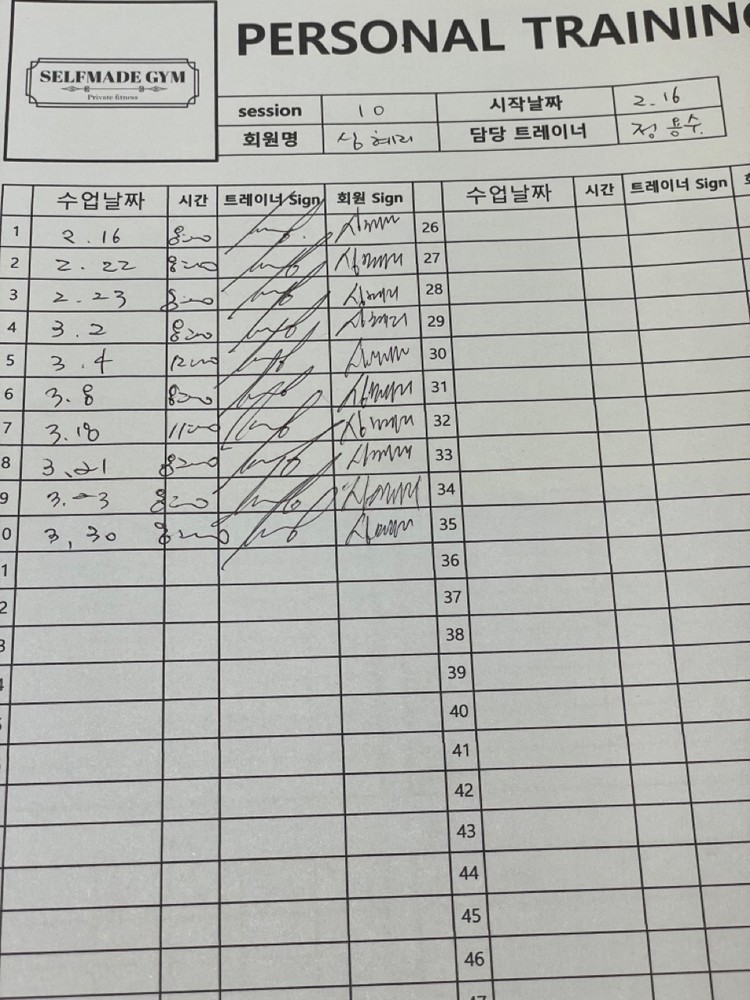 PERSONAL TRAINING
SELFMADE GYM
Private fitness
session 10 시작날짜 2.16
회원명 심혜리 담당 트레이너 정용수
수업날짜 시간 트레이너 Sign 회원 Sign 수업날짜 시간 트레이너 Sign
1 2.16 8:00 26
2 2.22 8:00 27
3 2.23 8:00 28
4 3.2 8:00 29
5 3.4 12:00 30
6 3.8 8:00 31
7 3.18 11:00 32
8 3.21 8:00 33
9 8:00 34
0 3.30 8:00 35
1 36
2 37
3 38
4 39
40
41
42
43
44
45
46
47